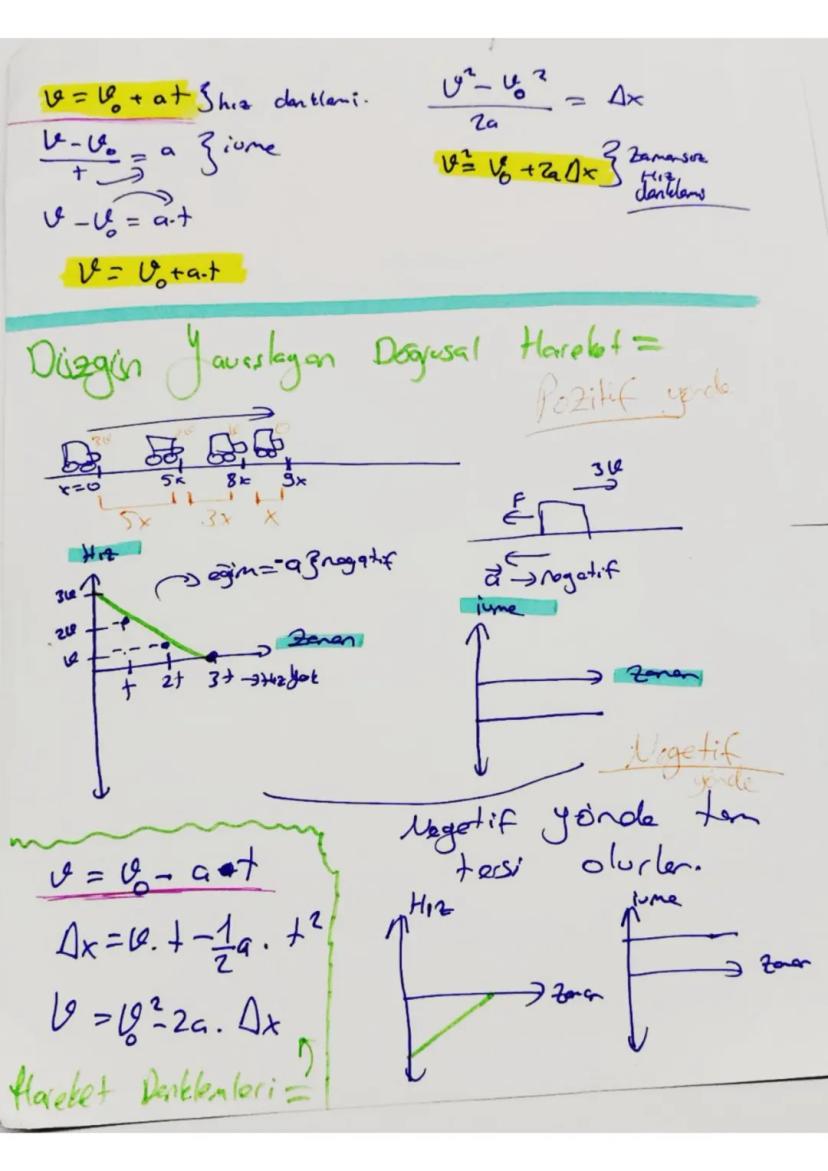 v = v₀ + at } hız denklemi.
v - v₀ / t = a } ivme
v - v₀ = a.t
v = v₀ + a.t
v² - v₀² / 2a = Δx
v² = v₀² + 2a Δx } Zamansız
Hız
denklemi
Düzgün Yavaşlayan Doğrusal Hareket =
Pozitif yönde
3v 2v v 0
x=0 5x 8x 9x
5x 3x x
3v
F
a → negatif
Hız
eğim = -a } negatif
3v
2v
v
Zaman
t 2t 3t → Hız yok
ivme
Zaman
Negatif
yönde
Negatif yönde tam
tersi olurlar.
v = v₀ - a • t
Δx = v. t - 1/2 a. t²
v = v₀² - 2a. Δx
Hareket Denklemleri =
Hız
Zaman
ivme
Zaman